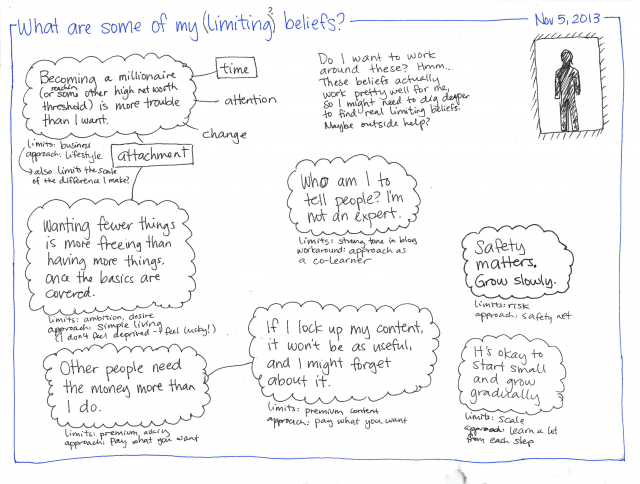 What are some of my (limiting?) beliefs?
Nov 5, 2013
Becoming a millionaire
(or reaching some other high net worth
threshold) is more trouble
than I want.
time
attention
change
limits: business
approach: lifestyle
→ also limits the scale
of the difference I make?
attachment
Do I want to work
around these? Hmm...
These beliefs actually
work pretty well for me,
so I might need to dig deeper
to find real limiting beliefs.
Maybe outside help?
Who am I to
tell people? I'm
not an expert.
limits: strong tone in blog
workaround: approach as
a co-learner
Wanting fewer things
is more freeing than
having more things,
once the basics are
covered.
limits: ambition, desire
approach: simple living
(I don't feel deprived - I feel lucky!)
Safety
matters.
Grow slowly.
limits: risk
approach: safety net
If I lock up my content,
it won't be as useful,
and I might forget
about it.
limits: premium content
approach: pay what you want
Other people need
the money more than
I do.
limits: premium,
approach: pay what you want
It's okay to
start small
and grow
gradually
limits: scale
approach: learn a lot
from each step